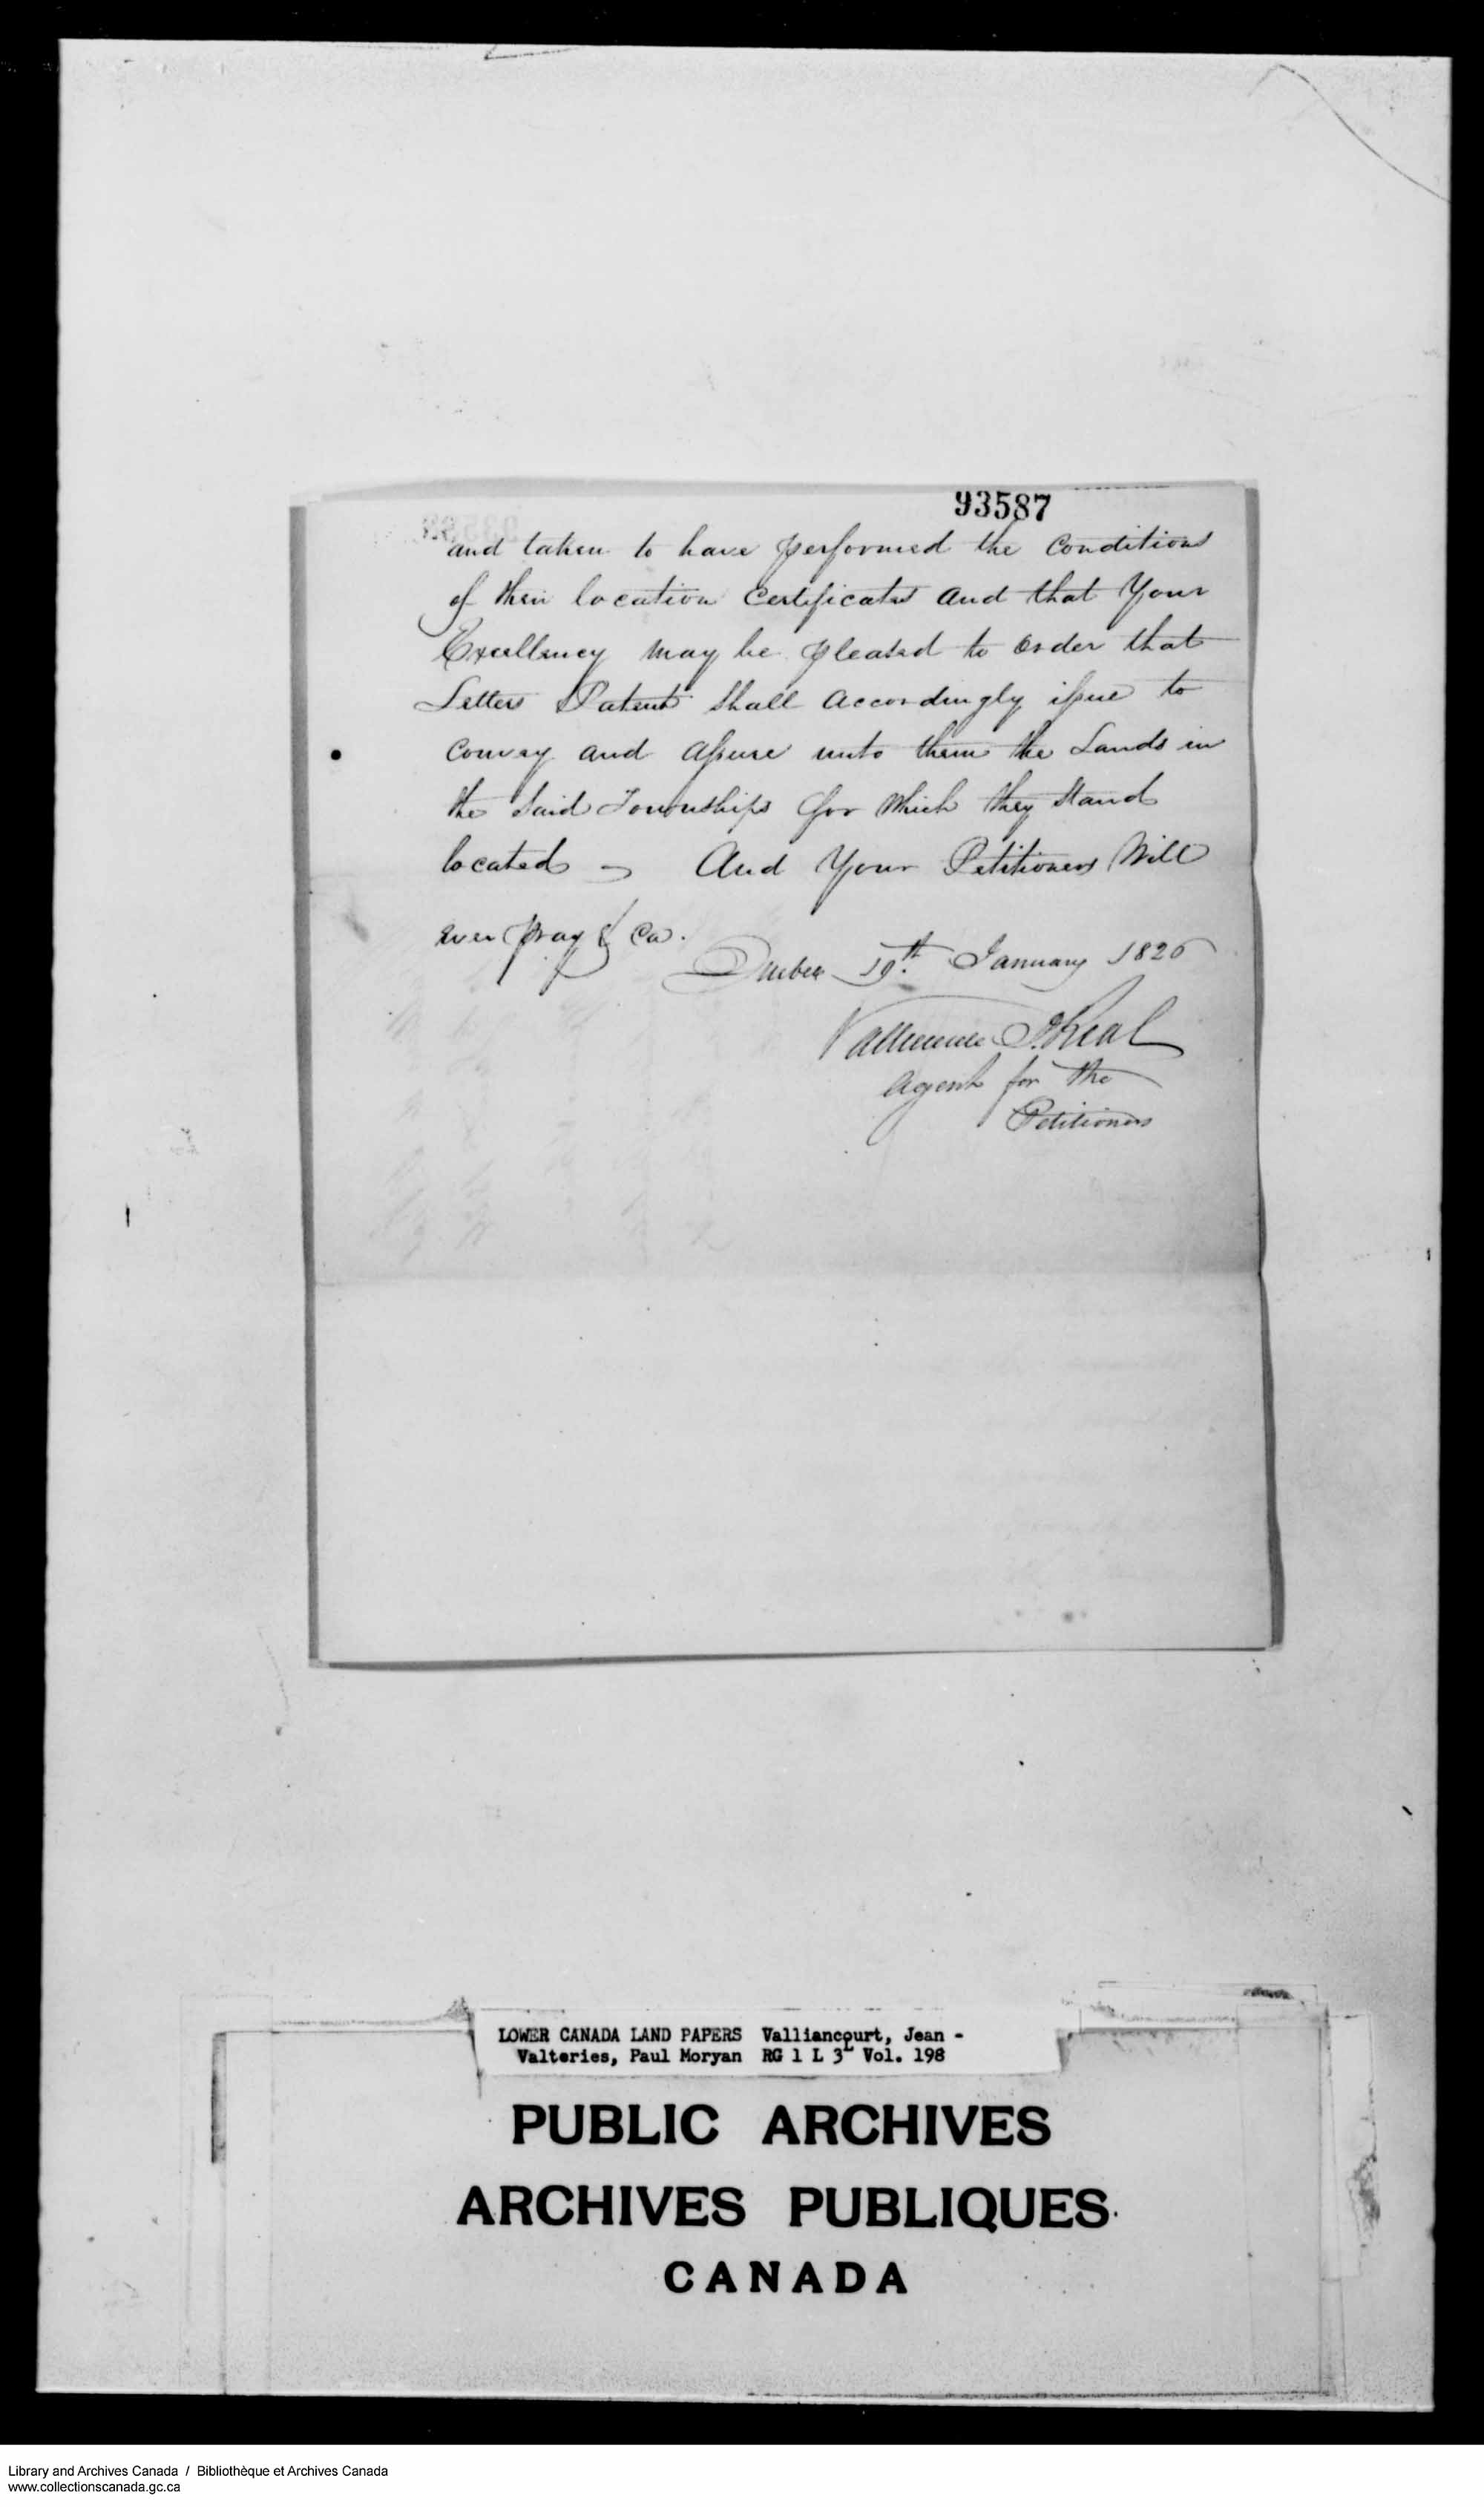 93587
and taken to have performed the Conditions
of their location Certificates and that Your
Excellency may be pleased to order that
Letters Patent shall accordingly issue to
Convey and assure unto them the Lands in
the said Townships for which they stand
located – And Your Petitioners Will
ever pray & Ca.
Quebec 19th. January 1826
agent for the
Petitioners
LOWER CANADA LAND PAPERS Valliancourt, Jean -
Valteries, Paul Moryan RG 1 L 3L Vol. 198
PUBLIC ARCHIVES
ARCHIVES PUBLIQUES
CANADA
Library and Archives Canada / Bibliothèque et Archives Canada
www.collectionscanada.gc.ca